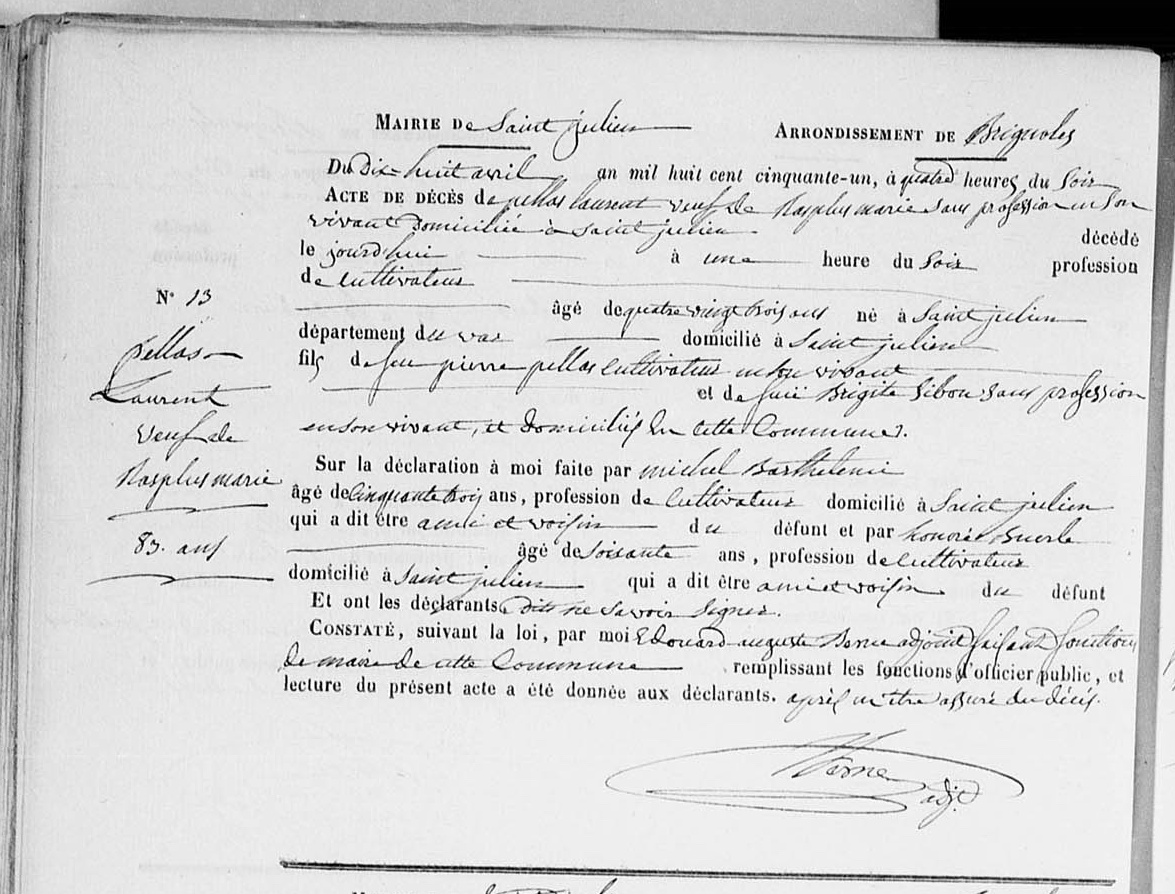 MAIRIE De Saint julien ARRONDISSEMENT DE Brignoles
Du dix-huit avril an mil huit cent cinquante-un, à quatre heures du Soir
ACTE DE DÉCÈS de pellas laurent veuf de Rasplus marie sans profession en son
vivant Domiciliée à Saint julien décédé
le jourd'hui à une heure du Soir profession
de Cultivateur
N° 13
âgé de quatre vingt trois ans né à Saint julien
département du var domicilié à Saint julien
pellas
fils de feu pierre pellas cultivateur en son vivant
Laurent
et de feüe Brigite Sibou sans profession
veuf de
en son vivant, et Domiciliés En cette Commune.
Rasplus marie
Sur la déclaration à moi faite par michel Barthelemi
âgé de Cinquante trois ans, profession de Cultivateur domicilié à Saint julien
qui a dit être ami et voisin du défunt et par honoré
83. ans
âgé de Soisante ans, profession de Cultivateur
domicilié à Saint julien qui a dit être ami et voisin du défunt
Et ont les déclarants dits ne Savoir Signer.
CONSTATÉ, suivant la loi, par moi Edouard auguste Verne adjoint faisant fonctions
de maire de cette Commune remplissant les fonctions d'officier public, et
lecture du présent acte a été donnée aux déclarants. après m'être assuré du décès.
Verne
adj.